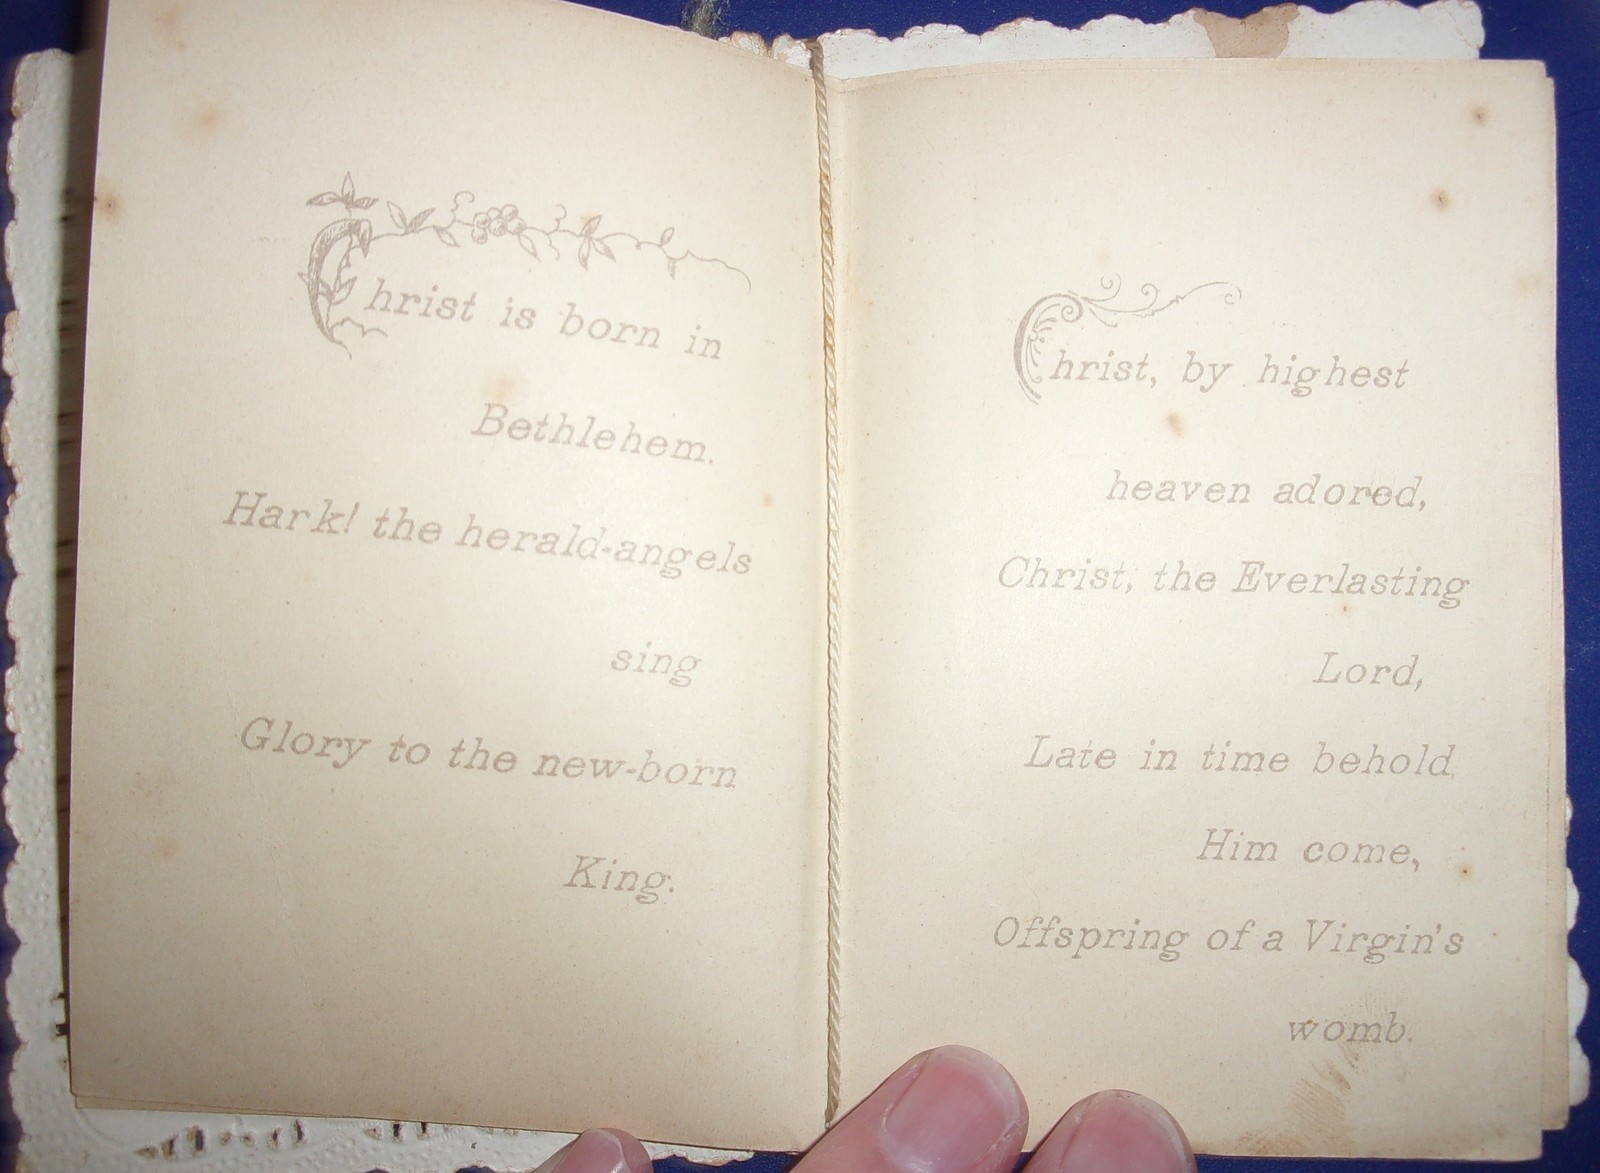 Christ is born in
Bethlehem.
Hark! the herald-angels
sing
Glory to the new-born
King.
Christ, by highest
heaven adored,
Christ, the Everlasting
Lord,
Late in time behold
Him come,
Offspring of a Virgin's
womb.